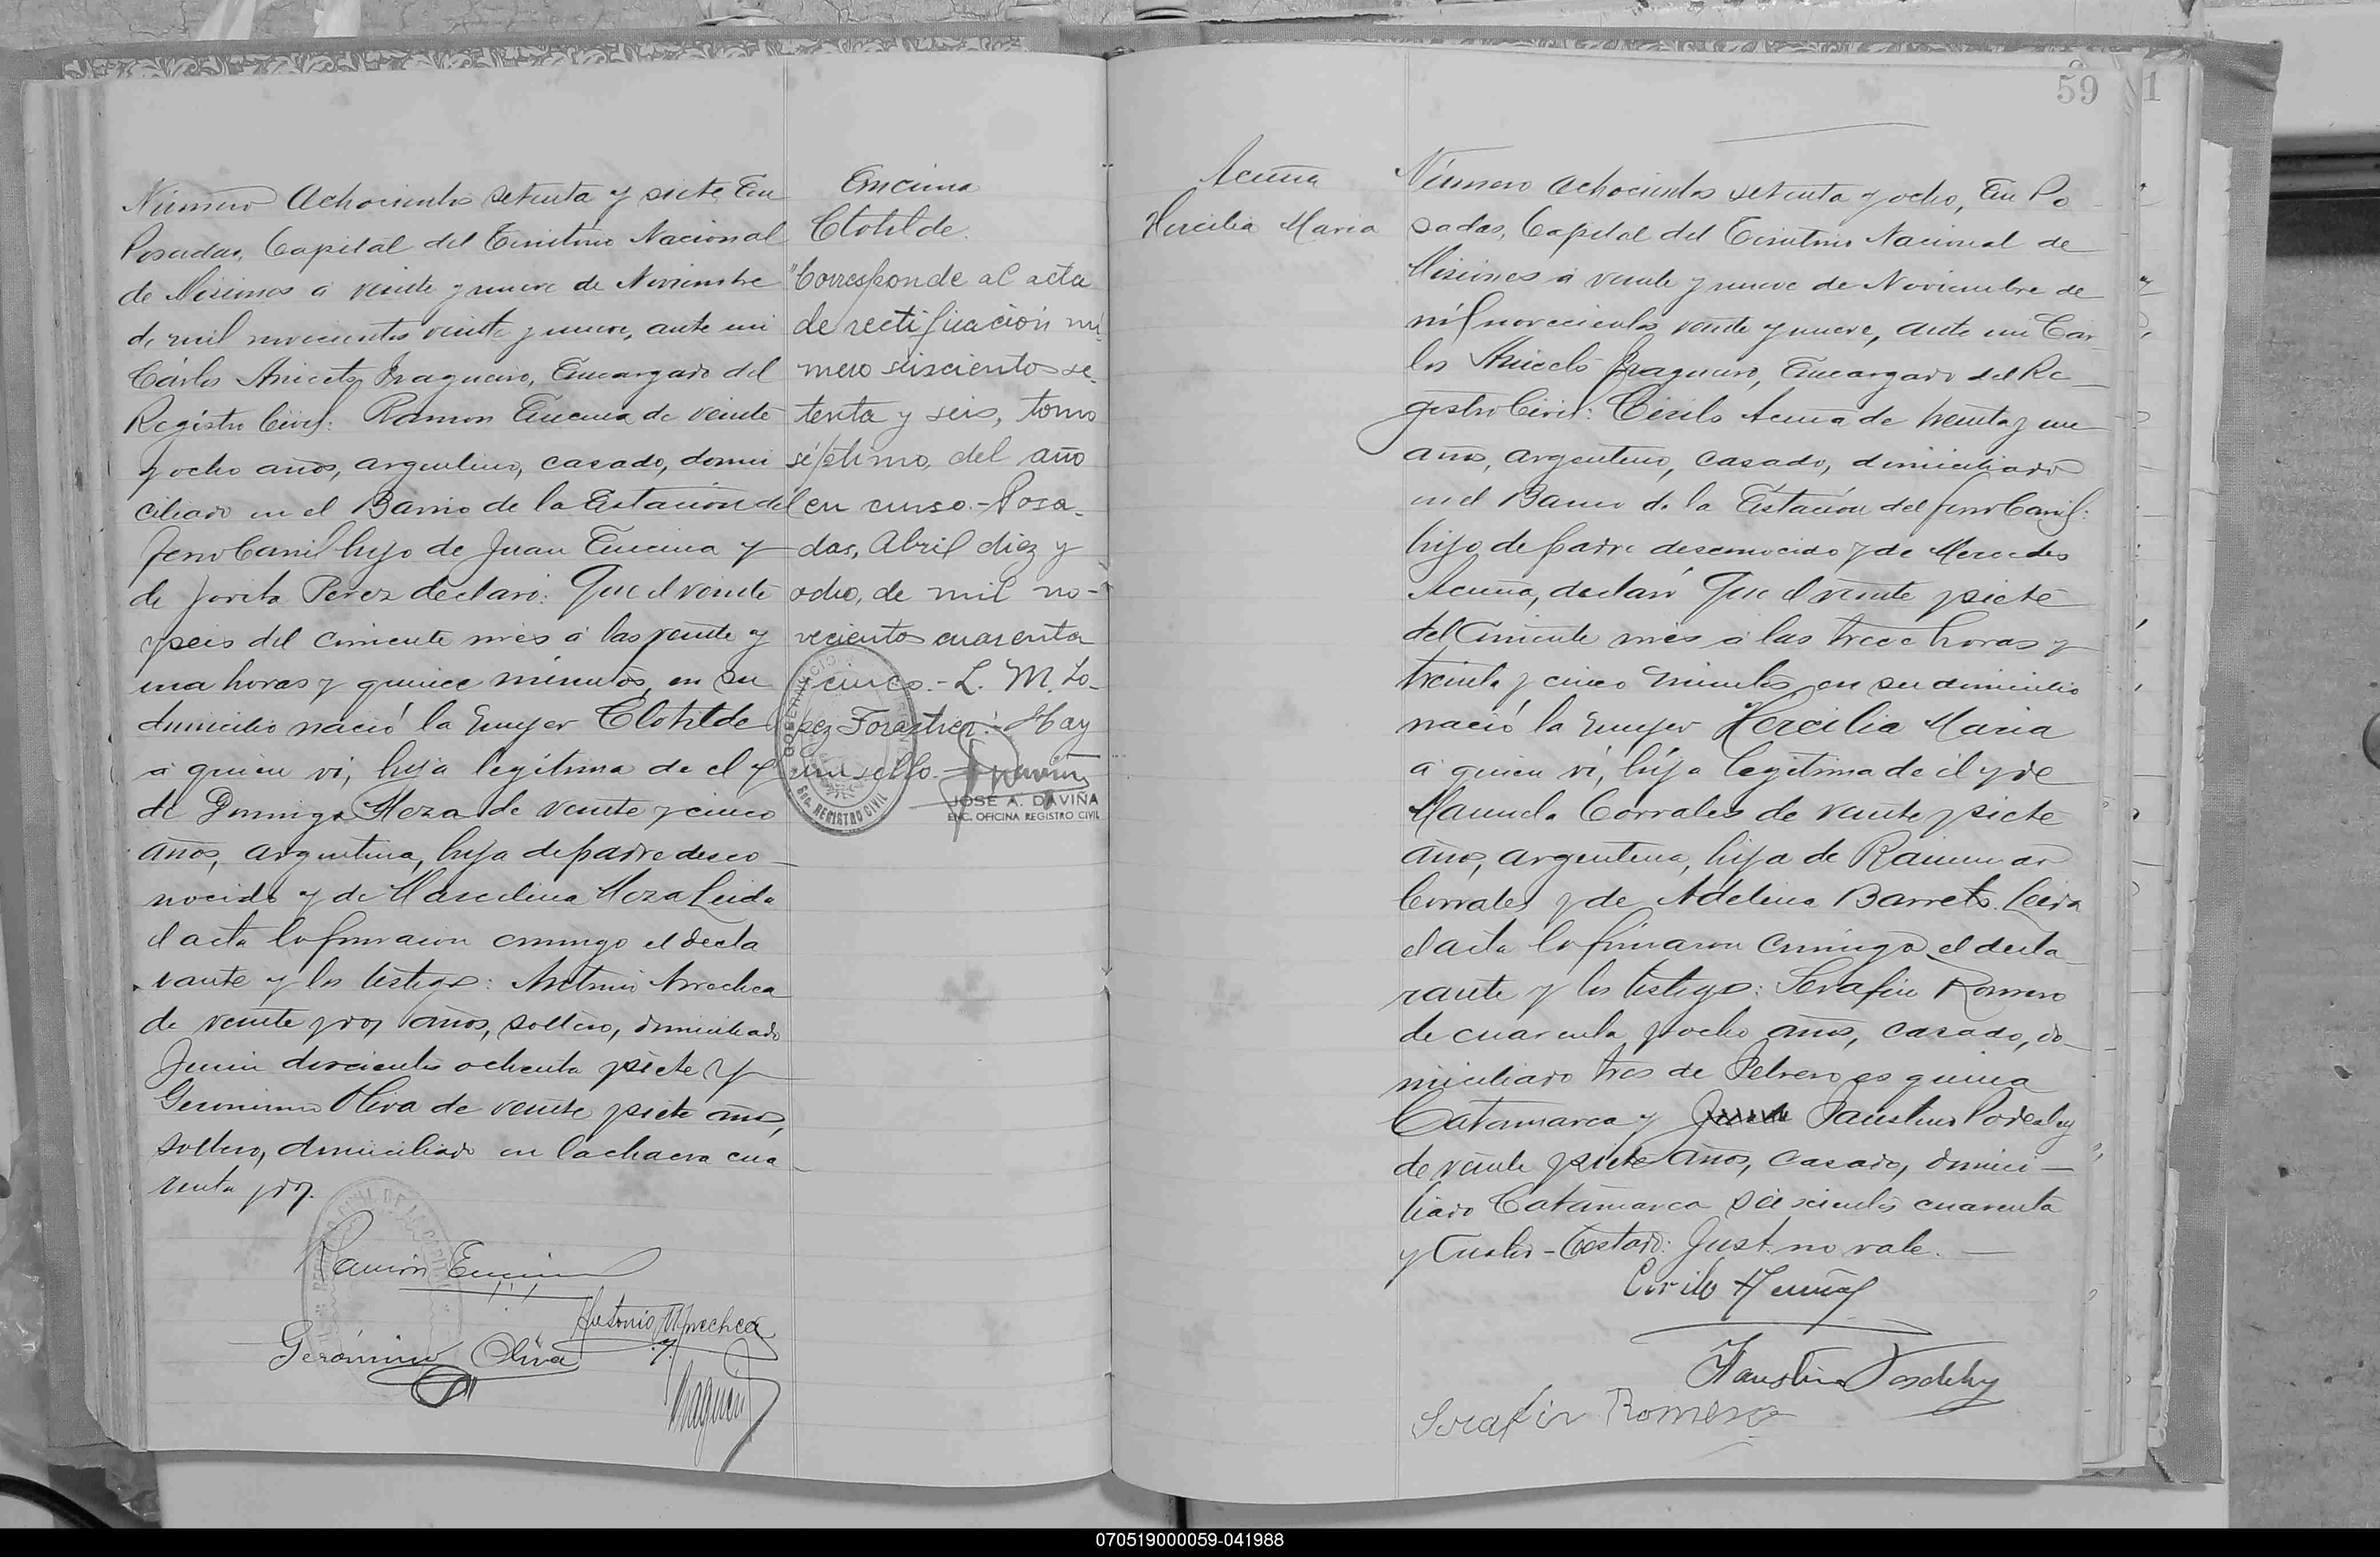 Número Ochocientos setenta y siete, En
Posadas, Capital del Territorio Nacional
de Misiones á veinte y nueve de Noviembre
de mil novecientos veinte y nueve, ante mi
Cárlos Aniceto Fragueiro, Encargado del
Registro Civil: Ramon Encina de veinte
y ocho años, argentino, casado, domi
ciliado en el Barrio de la Estación del
ferro Carril hijo de Juan Encina y
de Jovita Perez declaró: Que el veinte
y seis del corriente mes á las veinte y
una horas y quince minutos, en su
domicilio nació la mujer Clotilde
á quien vi, hija legítima de el y
de Dominga Meza de veinte y cinco
años, argentina, hija de padre desco
nocido y de Marcelina Meza Leida
el acta la firmaron conmigo el decla
rante y los testigos: Antonio Arrechea
de veinte y dos años, soltero, domiciliado
Junin doscientos ochenta y siete y
Geronimo Oliva de veinte y siete años,
soltero, domiciliado en la chacra cua
renta y dos.
Ramón Encina
Antonio Arrechea
Gerónimo Oliva
Encina
Clotilde
"Corresponde al acta
de rectificación nú-
mero seiscientos se-
tenta y seis, tomo
séptimo, del año
en curso.- Posa-
das, Abril diez y
ocho, de mil no-
vecientos cuarenta
y cinco.- L. M. Lo-
pez Forastier.- Hay
un sello.-
GOBERNACIO
REGISTRO CIVIL
JOSE A. DAVIÑA
ENC. OFICINA REGISTRO CIVIL
59
1
Acuña
Hercilia Maria
Número Ochocientos setenta y ocho, En Po
sadas, Capital del Territorio Nacional de
Misiones á veinte y nueve de Noviembre de
mil novecientos veinte y nueve, ante mi Car
los Aniceto Fragueiro, Encargado del Re
gistro Civil: Cirilo Acuña de treinta y un
años, argentino, casado, domiciliado
en el Barrio de la Estación del ferro Carril:
hijo de padre desconocido y de Mercedes
Acuña, declaró Que el veinte y siete
del corriente mes á las trece horas y
treinta y cinco minutos, en su domicilio
nació la mujer Hercilia Maria
á quien vi, hija legítima de él y de
Manuela Corrales de veinte y siete
años, argentina, hija de
Corrales y de Adelina Barreto. Leida
el acta la firmaron conmigo el decla
rante y los testigos: Serafin Romero
de cuarenta y ocho años, casado, do
miciliado tres de Febrero esquina
Catamarca y Faustino Podesley
de veinte y siete años, casado, domici
liado Catamarca seiscientos cuarenta
y cuatro - Testado: Just. no vale.
Cirilo Acuña
Faustino
Serafin Romero
070519000059-041988